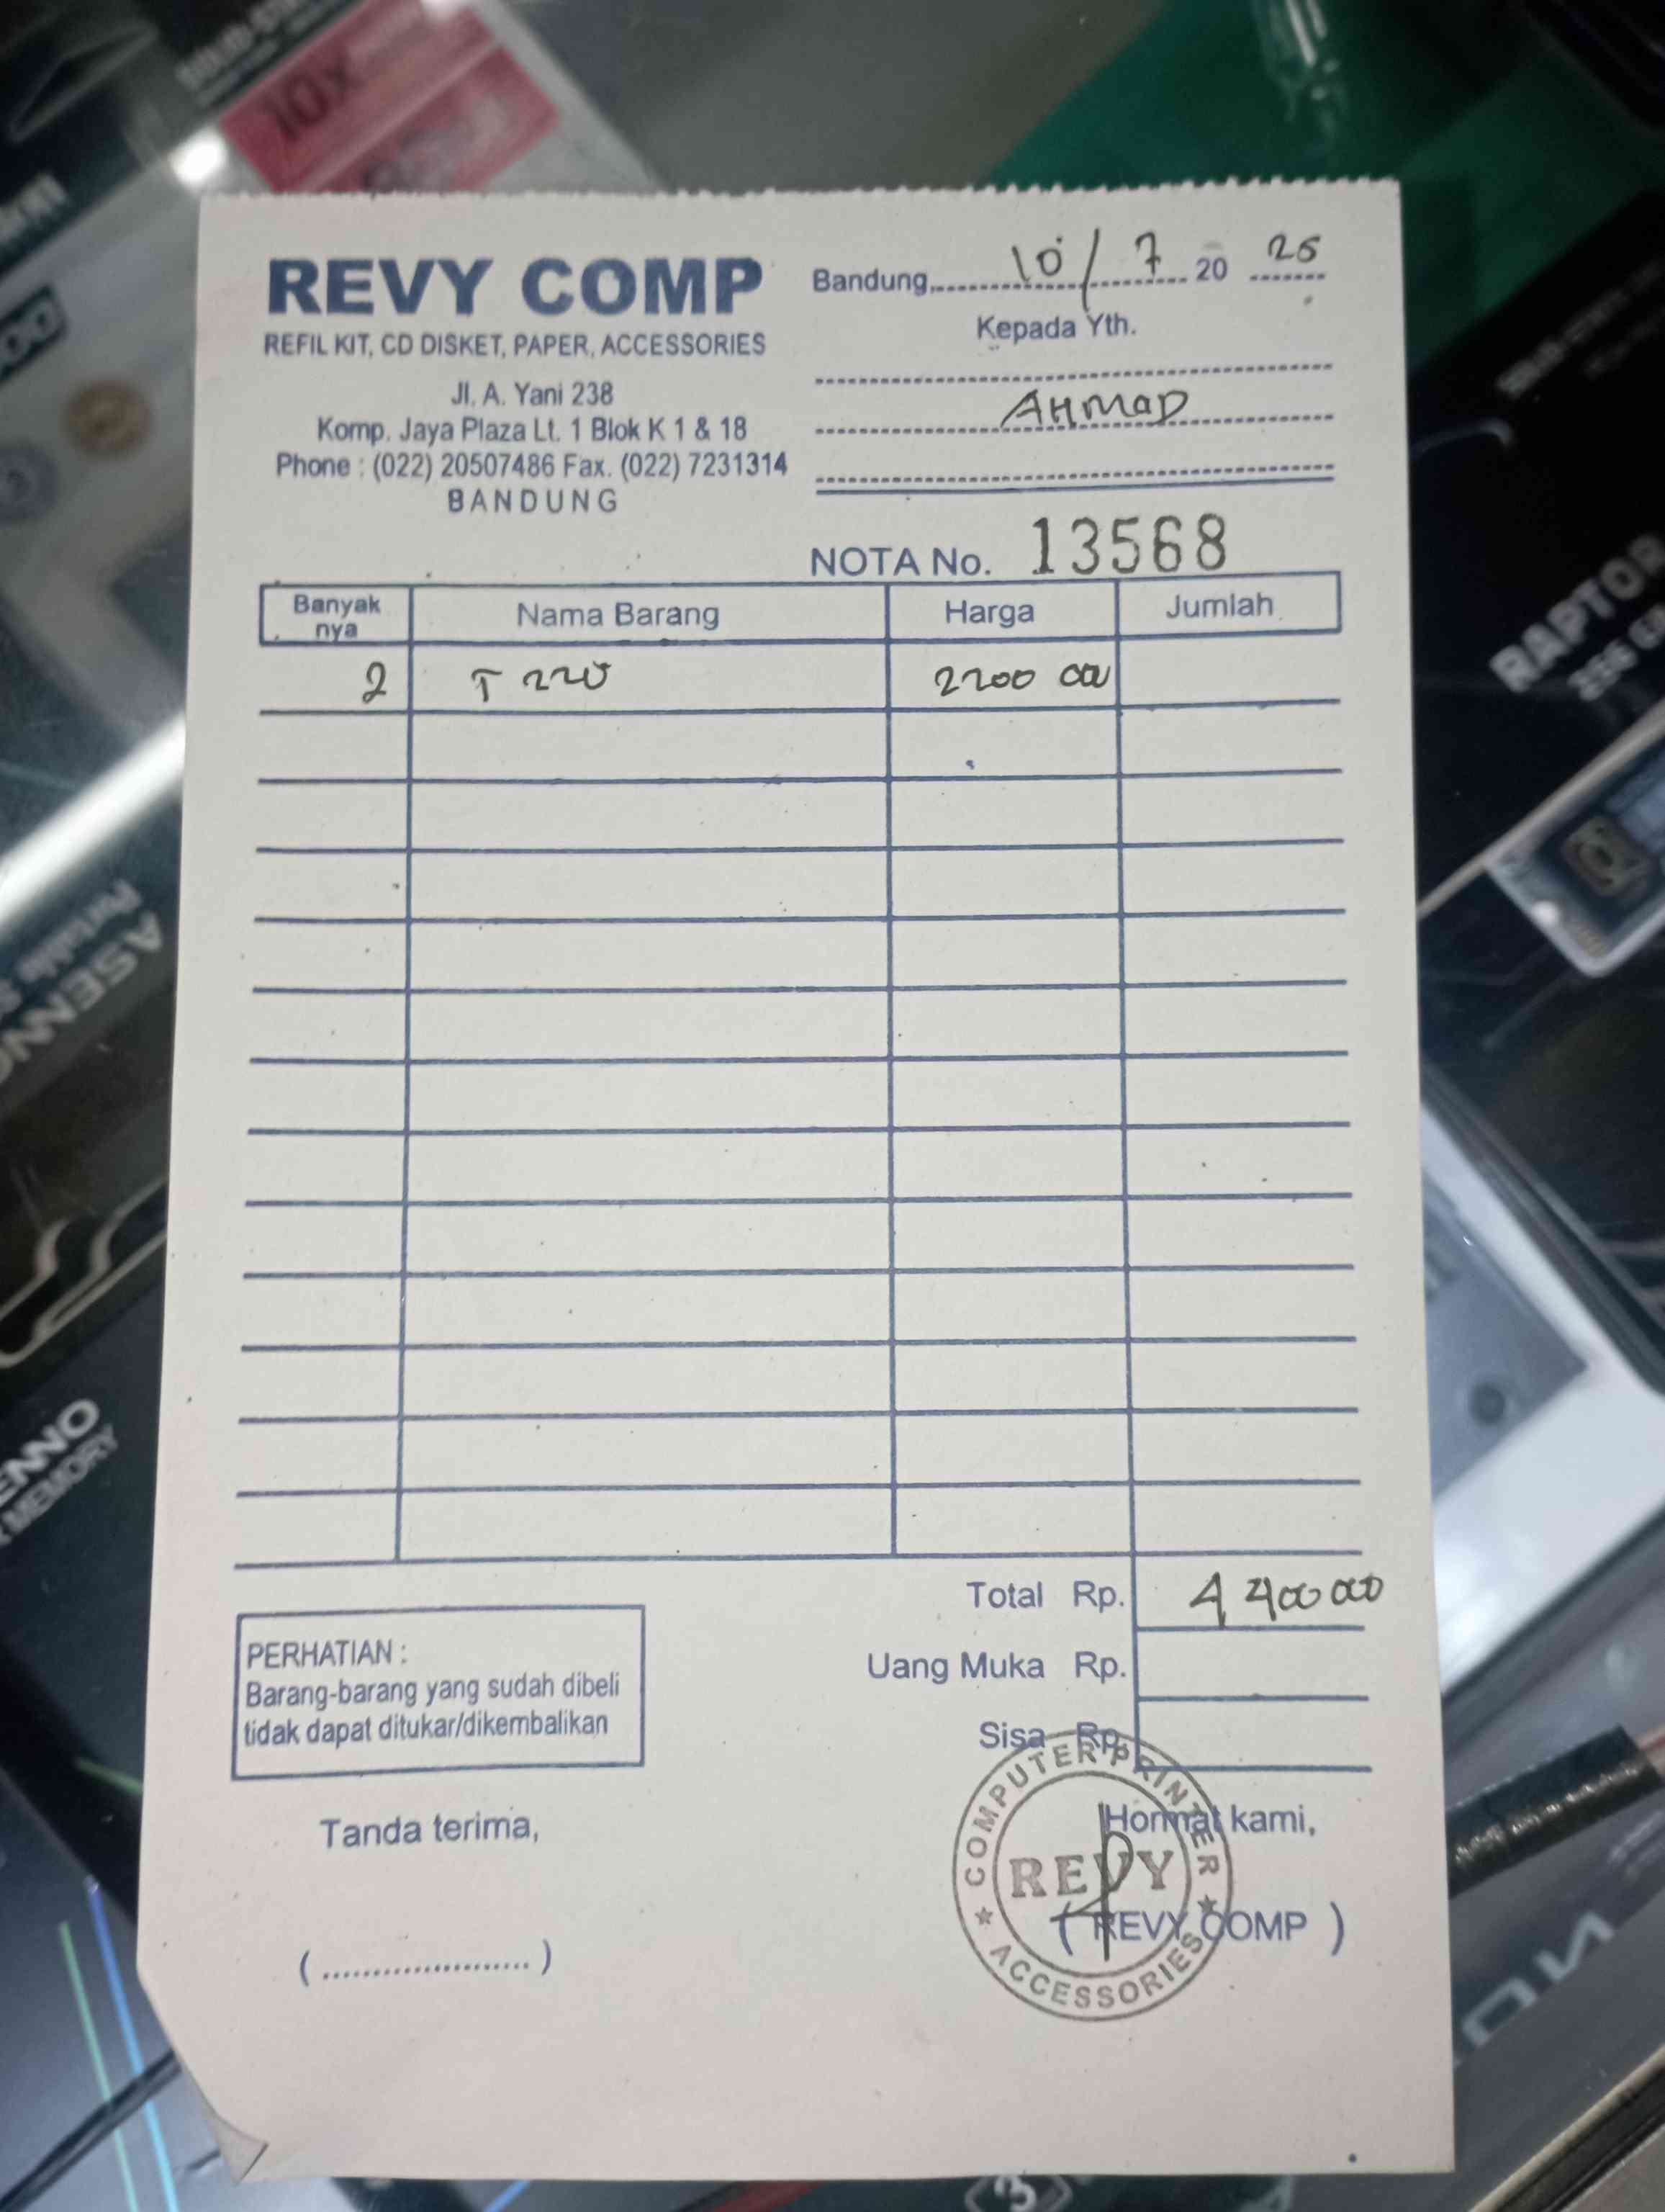 REVY COMP
REFIL KIT, CD DISKET, PAPER, ACCESSORIES
Jl. A. Yani 238
Komp. Jaya Plaza Lt. 1 Blok K 1 & 18
Phone : (022) 20507486 Fax. (022) 7231314
BANDUNG
Bandung, 10/7 20 25
Kepada Yth.
AHMAD
NOTA No. 13568
Banyak nya Nama Barang Harga Jumlah
2 T 220 2200 000
Total Rp. 4 400 000
Uang Muka Rp.
Sisa Rp.
PERHATIAN :
Barang-barang yang sudah dibeli
tidak dapat ditukar/dikembalikan
Tanda terima,
Hormat kami,
( REVY COMP )
COMPUTER PRINTER
REVY
ACCESSORIES
10x
RAPTOR
256 GB
ENNO
MEMORY